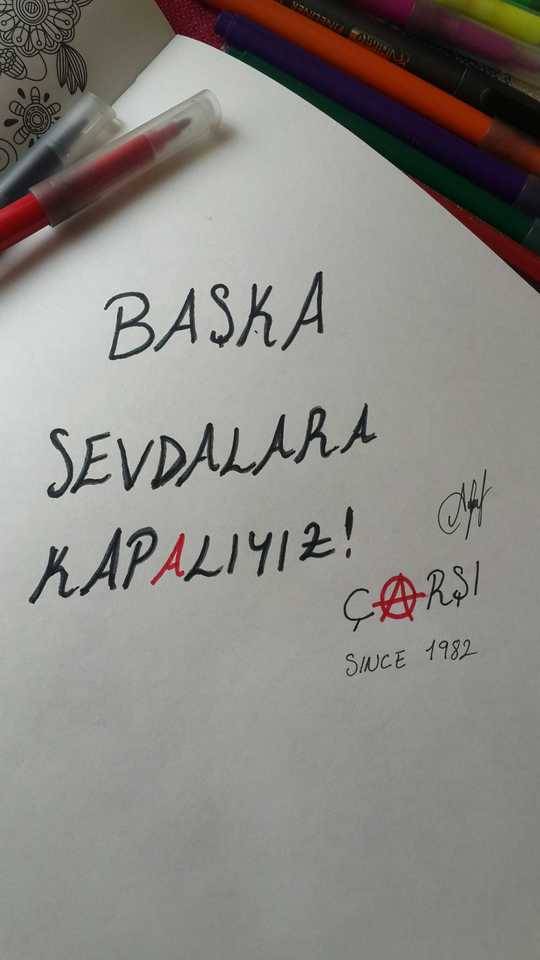 BAŞKA
SEVDALARA
KAPALIYIZ!
ÇARŞI
SINCE 1982
FINELINER